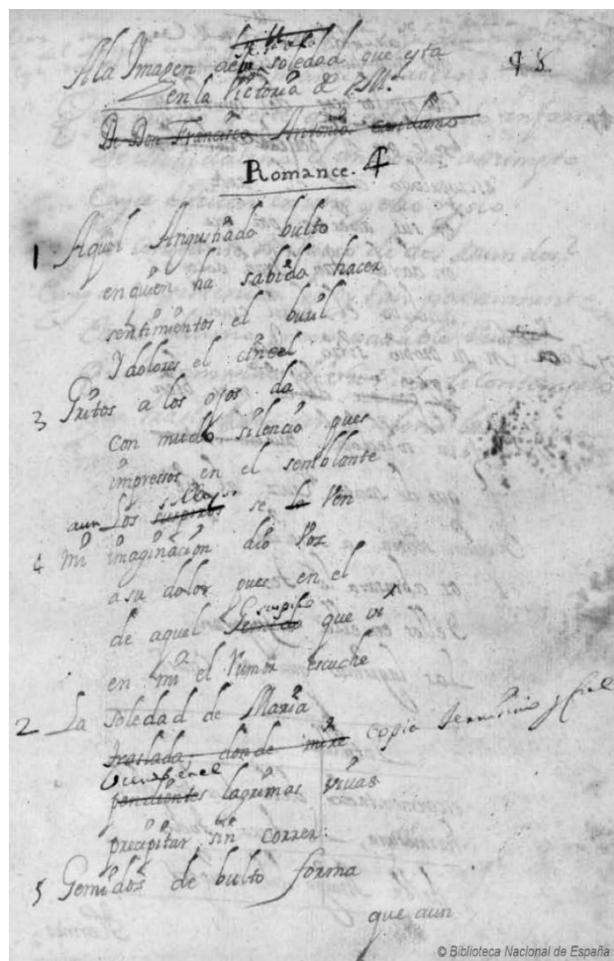 A la Imagen de la soledad que esta
48
en la Victoria de M.
De Don Francisco Antonio
Romance. 4
1 Aquel Angustiado bulto
en quien ha sabido hacer
sentimientos el buril
Y dolores el cincel
3 Gritos a los ojos da
con mudo silencio pues
impressos en el semblante
sollozos
aun Los suspiros se la ven
4 Mi imaginacion dio voz
a su dolor pues en el
suspiro
de aquel Gemido que vi
en mi el rumor escuche
2 La Soledad de Maria
traslada, donde mire copia y fiel
pendientes lagrimas vivas
precipitar sin correr.
5 Gemidos de bulto forma
que aun
© Biblioteca Nacional de España